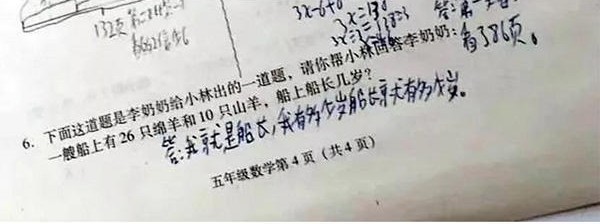 132页
3x-6+6
看了386页。
6. 下面这道题是李奶奶给小林出的一道题，请你帮小林回答李奶奶：
一艘船上有26只绵羊和10只山羊，船上船长几岁？
答：我就是船长，我有多少岁船长就有多少岁。
五年级数学第4页（共4页）